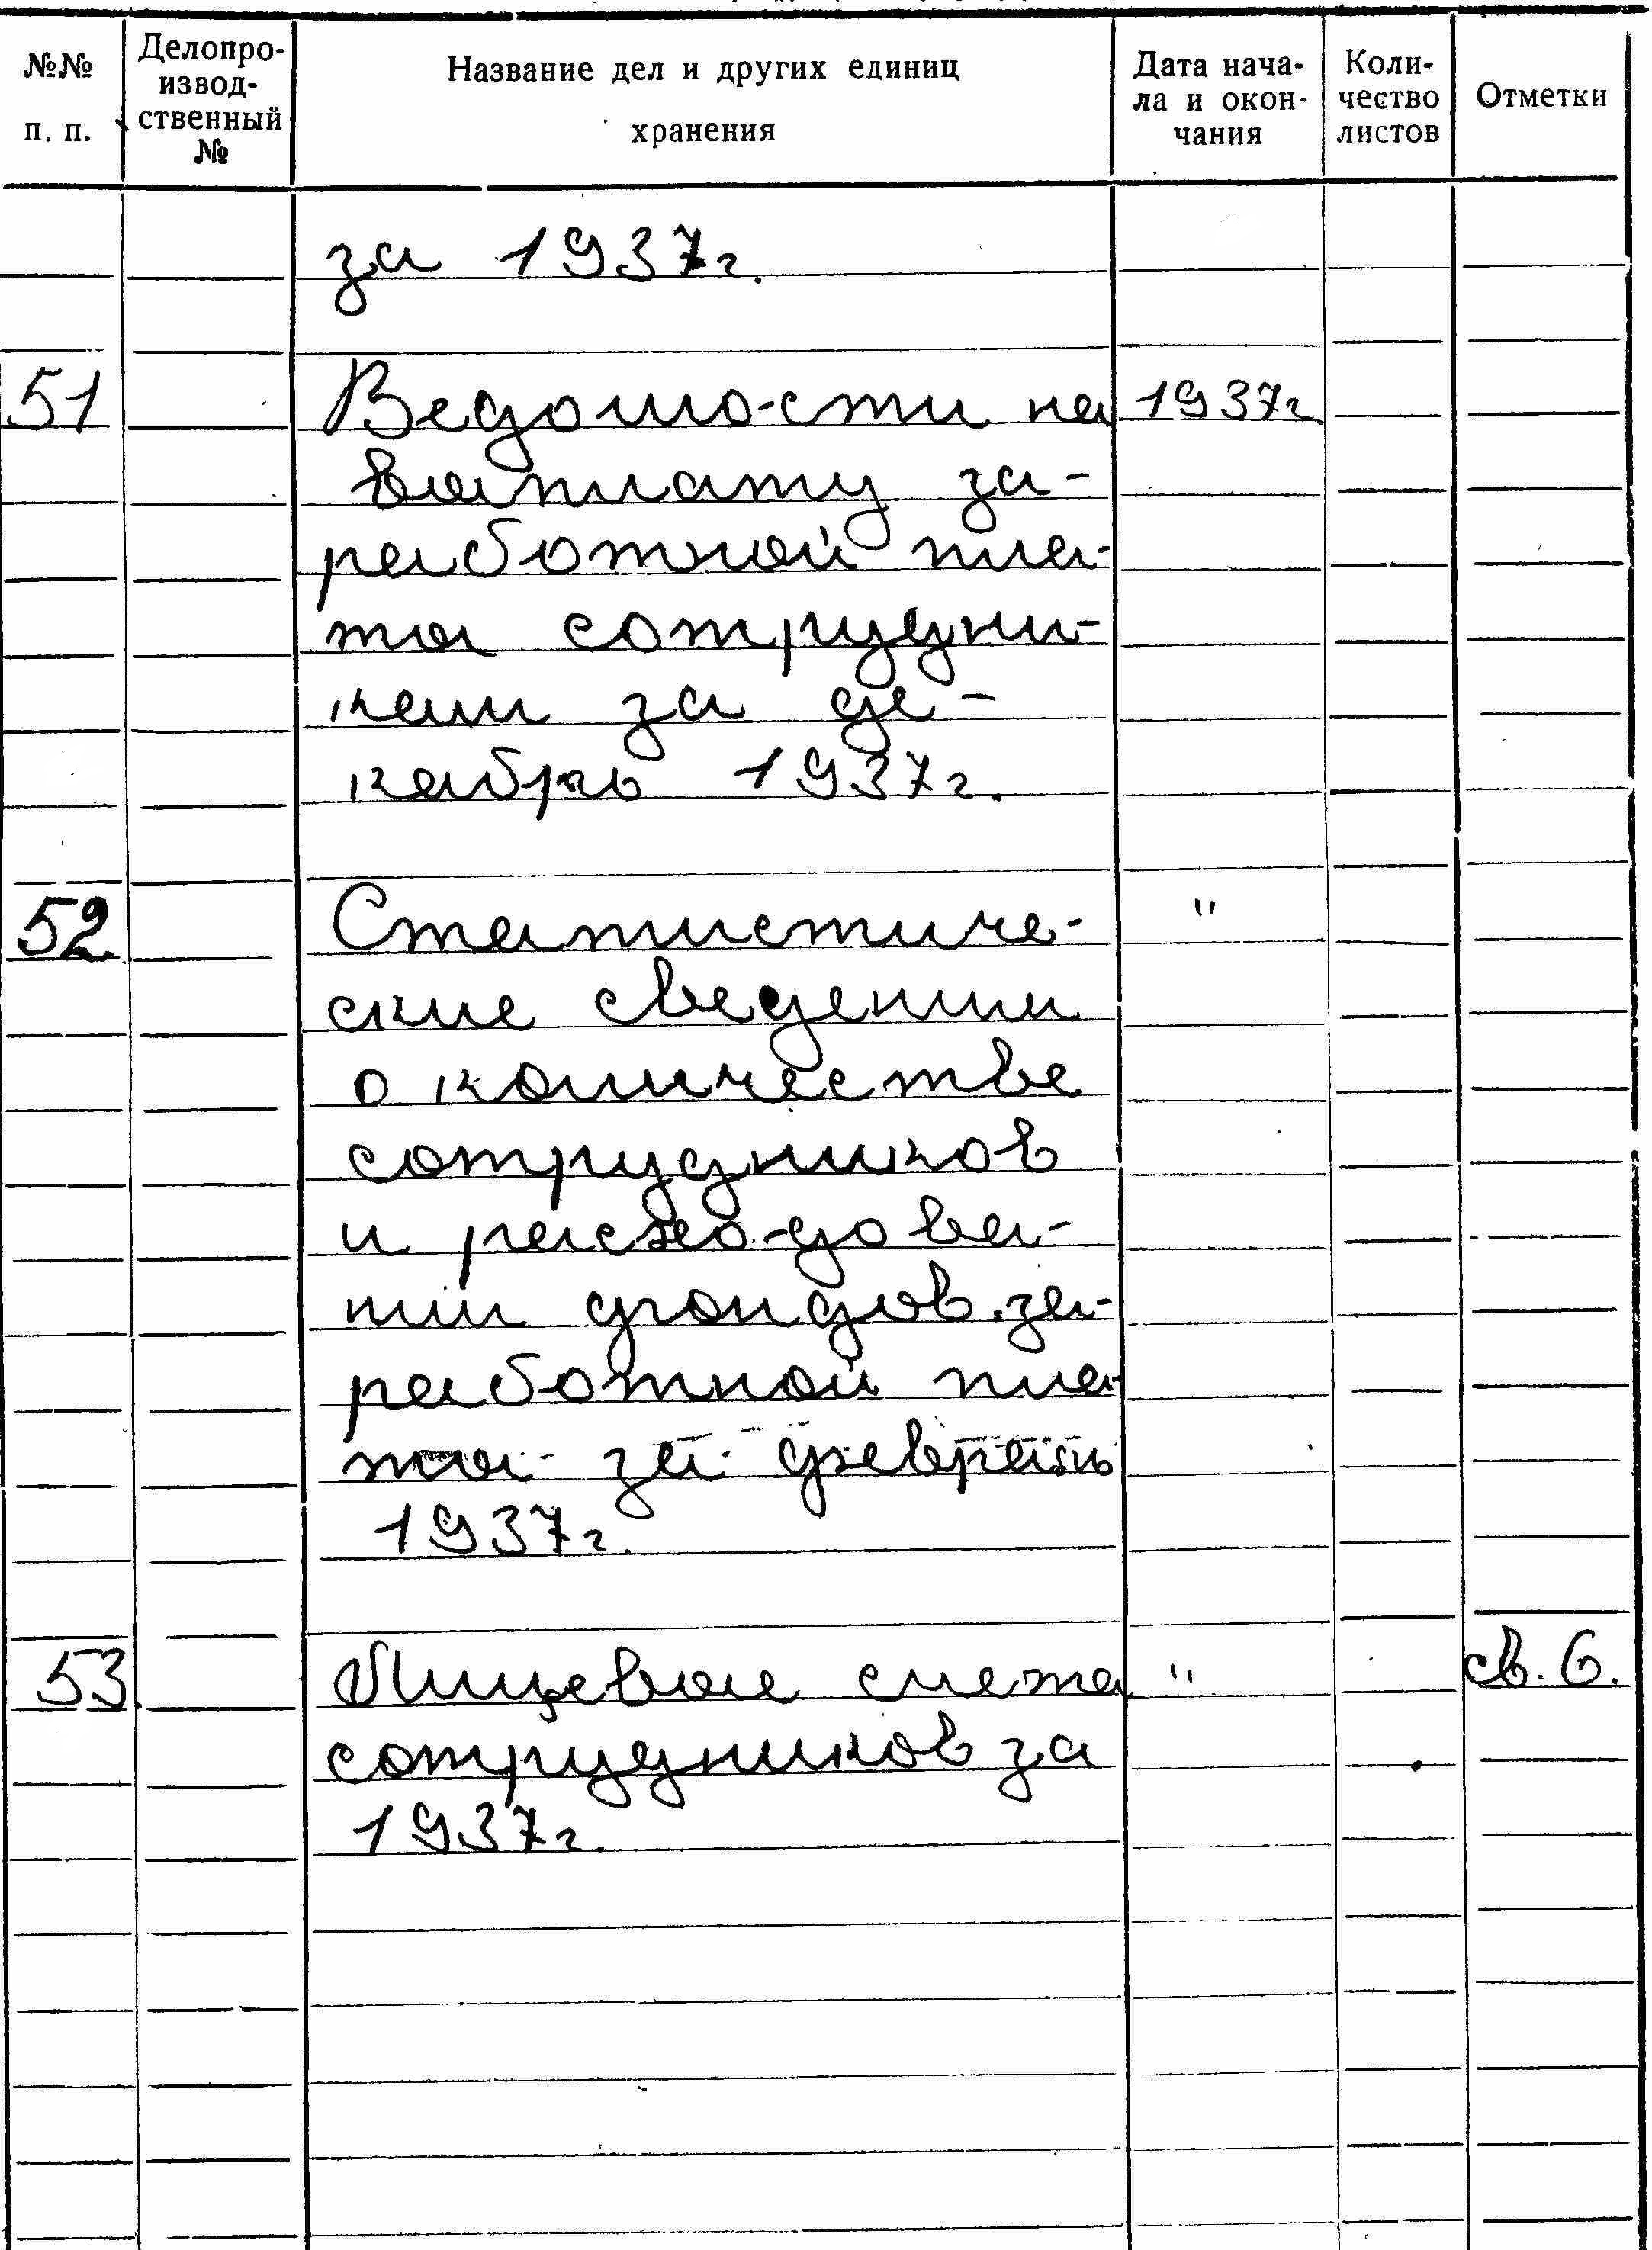 №№ п. п.
Делопро-
извод-
ственный
№
Название дел и других единиц
хранения
Дата нача-
ла и окон-
чания
Коли-
чество
листов
Отметки
за 1937г.
51 Ведомости на 1937г
выплату за-
работной пла-
ты сотрудни-
кам за де-
кабрь 1937г.
52 Статистиче- "
ские сведения
о количестве
сотрудников
и расходова-
нии фондов за-
работной пла-
ты за февраль
1937г.
53 Лицевые счета " св. 6.
сотрудников за
1937г.